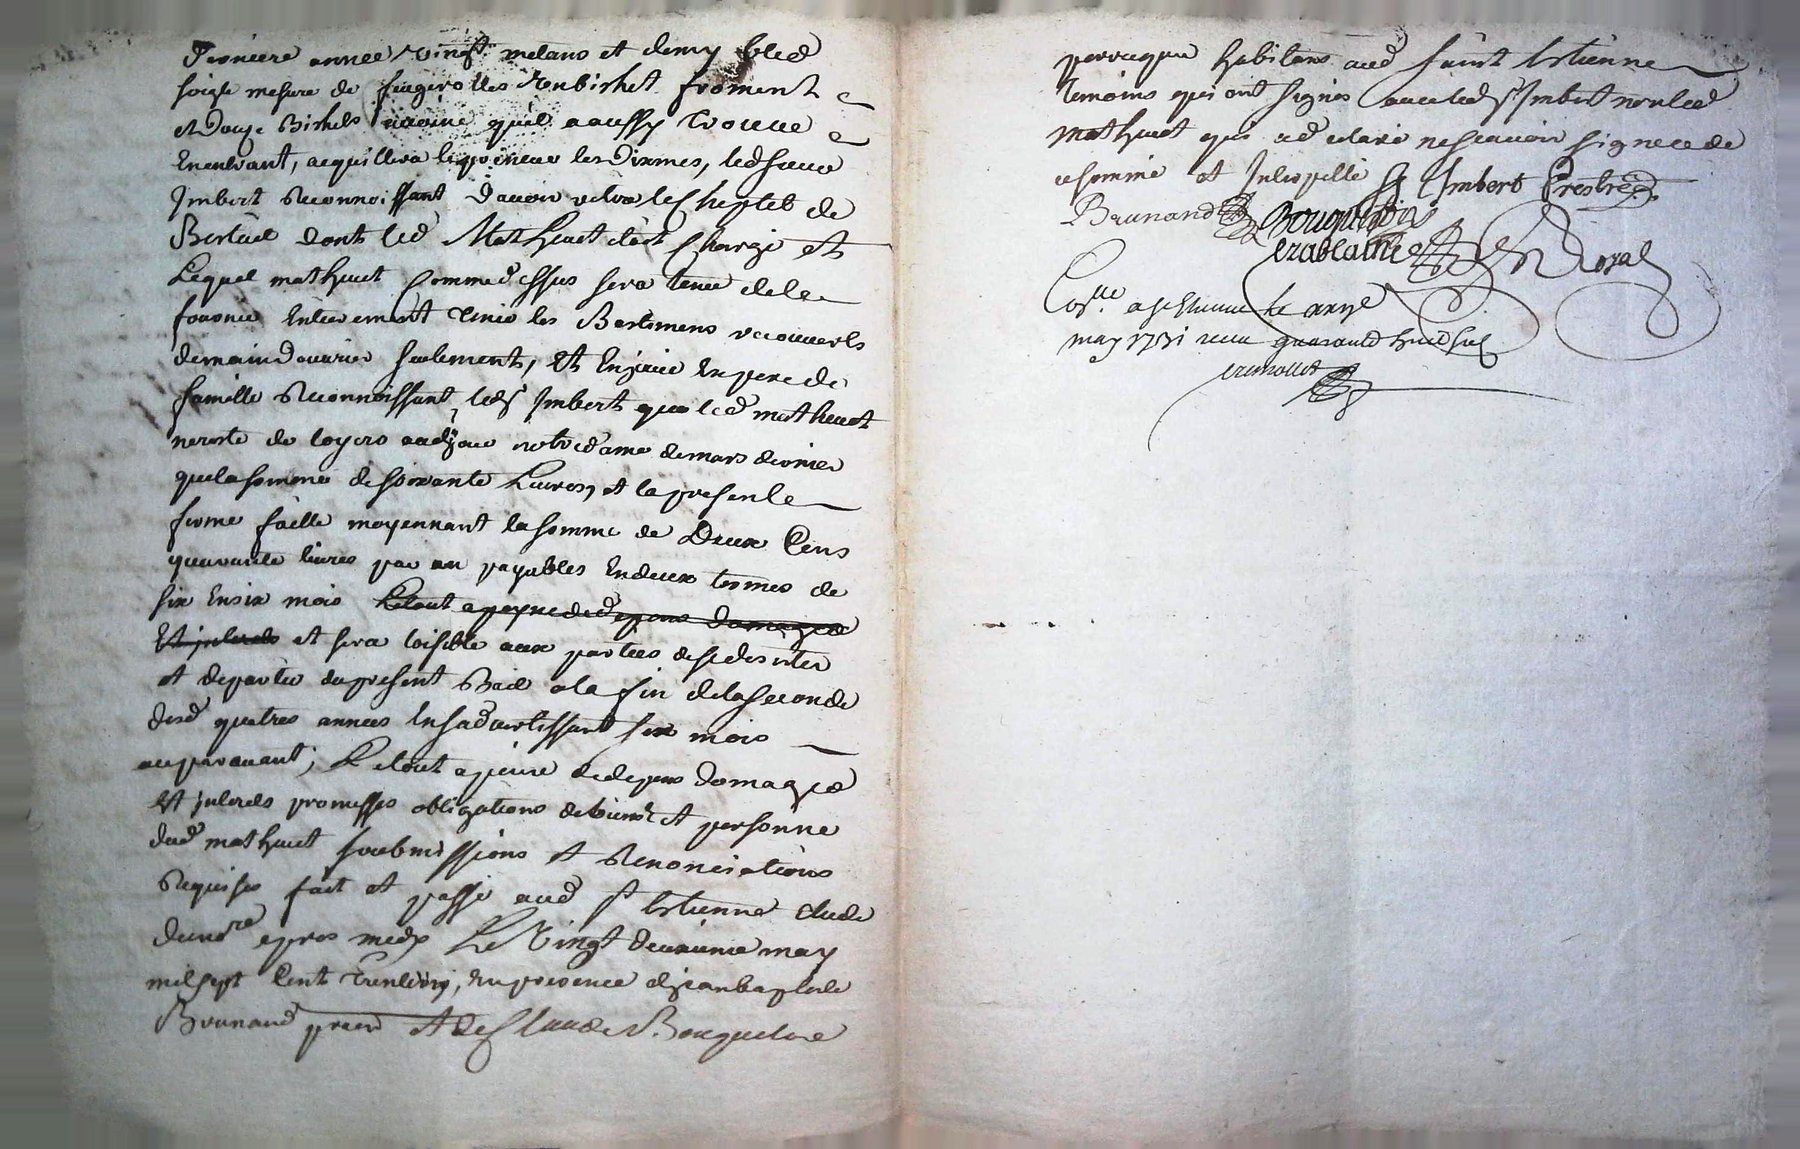 derniere année vingt metans et demy bled
soigle mesure de feugerolles un bichet froment
et douze Bichets avoine quil a aussy trouvé
en entrant, acquittera le preneur les dixmes, led sieur
Imbert Reconnoissant d'avoir retiré le Cheptel de
Bestial dont led Mathevet etoit Chargé et
Lequel mathevet Comme dessus sera tenu de le
fournir Entierement tenir les Bastimens recouverts
de main douvrier seulement, Et En jouir en pere de
famille Reconnoissant led Sr Imbert que led mathevet
ne reste de loyers au jour notre dame de mars dernier
que la somme de soixante Livres, et la presente
ferme faitte moyennant la somme de Deux Cens
quarante livres par an payables En deux termes de
six En six mois Le tout a peyne de depens damages
Et interets et sera loisible aux parties de se desister
et departir du present Bail a la fin de la seconde
desd quatres années En sadvertissant six mois
auparavant; Le tout a peine de depens domages
Et interets promesses obligations de biens et personne
dud mathevet soubmissions et Renonciations
Requises fait et passé aud St Estienne Etude
du nore apres midy Le Vingt deuxieme may
mil sept Cent Trente un, en presence de jean baptiste
Brunand et de Claude Bouquet
perruquier habitans aud Saint Estienne
temoins qui ont signés avec led Sr Imbert non led
mathevet qui a declaré ne scavoir signer de ce
sommé et Interpellé Imbert Prestre
Brunand Bouquet
Coll. a St Etienne le
may 1731 receu quarante huit sols